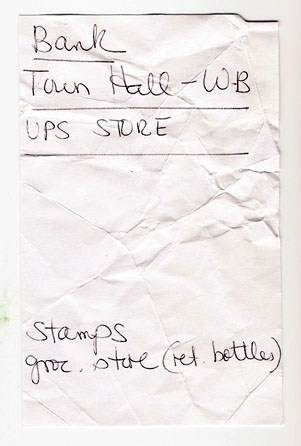 Bank
Town Hall - WB
UPS STORE
Stamps
groc. store (ret. bottles)